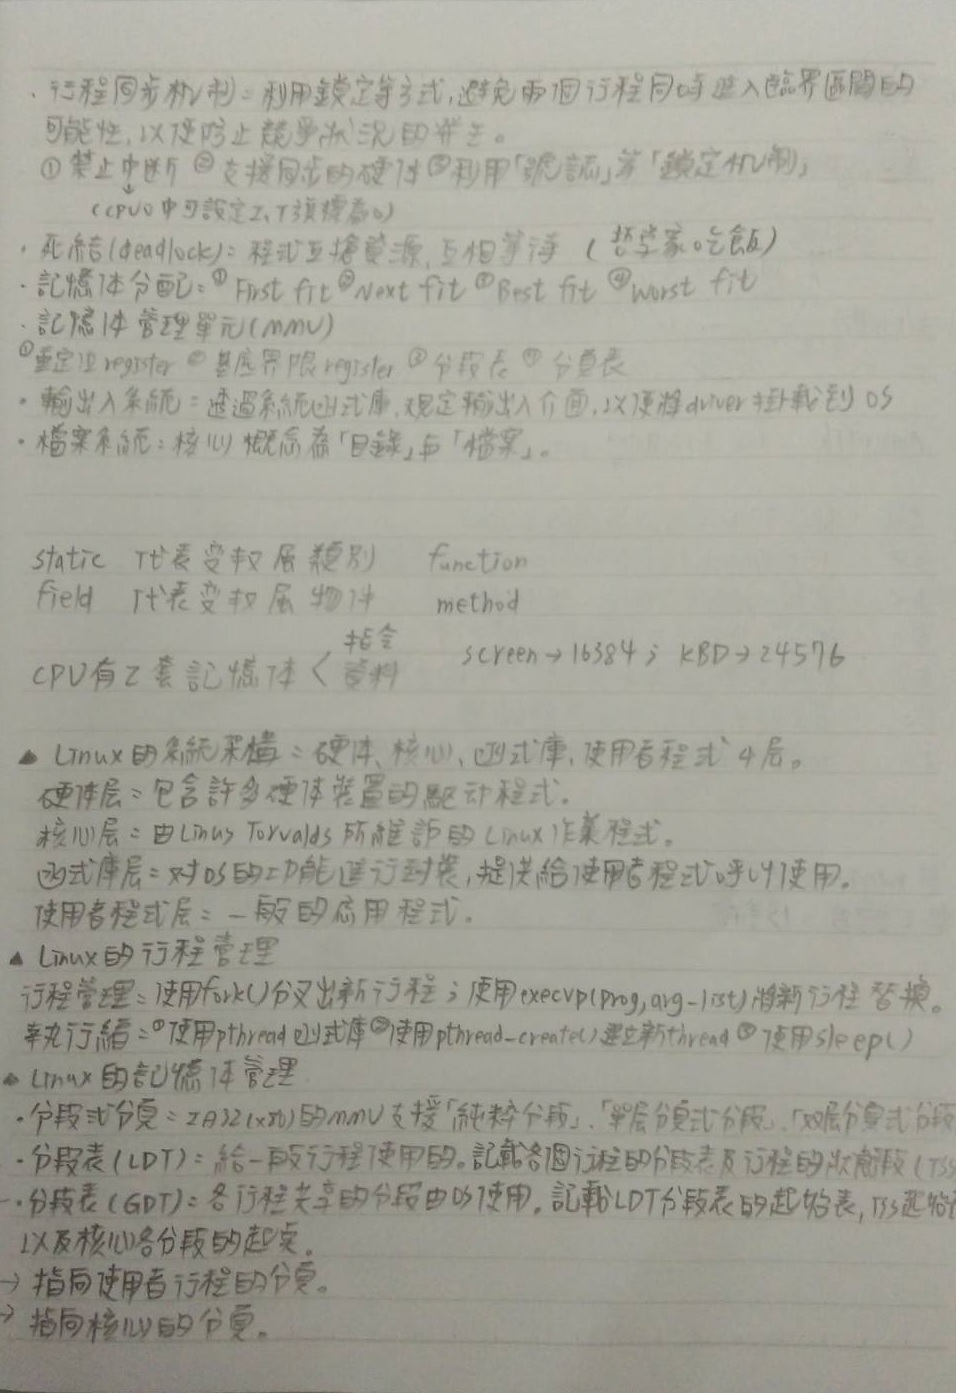 · 行程同步机制:利用鎖定等方式,避免兩個行程同時進入臨界區間的
可能性,以便防止競爭狀況的發生。
①禁止中断 ②支援同步的硬体 ③利用「號誌」等「鎖定机制」
↓
(CPU0中可設定I,T旗標為0)
· 死結(deadlock):程式互搶資源,互相等待 (哲学家吃飯)
· 記憶体分配:①First fit ②Next fit ③Best fit ④Worst fit
· 記憶体管理單元(MMU)
①重定址register ②基底界限register ③分段表 ④分頁表
· 輸出入系統:透過系統函式庫,規定輸出入介面,以便將driver掛載到OS
· 檔案系統:核心概念為「目錄」与「檔案」。
static 代表变数层類別 function
field 代表变数层物件 method
CPU有2套記憶体< 指令 資料 screen→16384; KBD→24576
▲ Linux的系統架構:硬体、核心、函式庫、使用者程式4层。
硬体层:包含許多硬体裝置的驅动程式。
核心层:由Linus Torvalds所維護的Linux作業程式。
函式庫层:对OS的功能進行封裝,提供給使用者程式呼叫使用。
使用者程式层:一般的应用程式。
▲ Linux的行程管理
行程管理:使用fork()分叉出新行程;使用execvp(prog,arg-list)將新行程替換。
執行緒:①使用pthread函式庫②使用pthread-create()建立新thread ③使用sleep()
▲ Linux的記憶体管理
· 分段式分頁:IA32(x86)的MMU支援「純粹分段」、「單层分頁式分段」、「双层分頁式分段
· 分段表(LDT):給一般行程使用的。記載各個行程的分段表及行程的狀態段(TSS
· 分段表(GDT):各行程共享的分段由OS使用。記載LDT分段表的起始表,TSS起始
以及核心各分段的起点。
→ 指向使用者行程的分頁。
→ 指向核心的分頁。